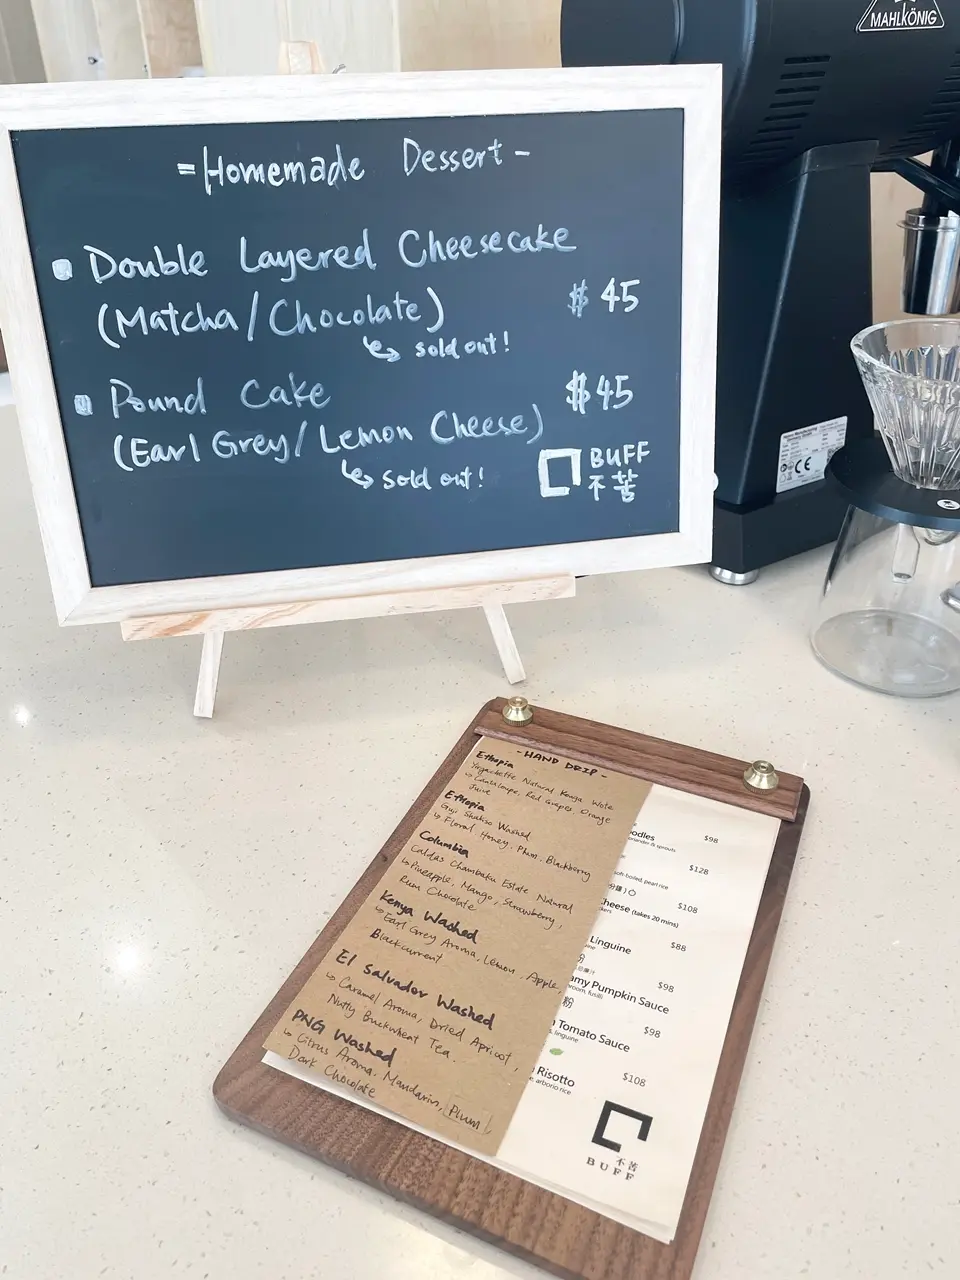 MAHLKÖNIG
= Homemade Dessert -
Double Layered Cheesecake
(Matcha/Chocolate) $ 45
↳ sold out!
Pound Cake $45
(Earl Grey/Lemon Cheese)
↳ sold out!
BUFF
不苦
- HAND DRIP -
Ethopia
Natural Kenya Wote
↳ Cantaloupe, Red Grapes Orange
Juice
Ethopia
Guji Shakiso Washed
↳ Floral Honey, Plum, Blackberry
Columbia
Caldas Chambaku Estate Natural
↳ Pineapple, Mango, Strawberry,
Rum Chocolate
Kenya Washed
↳ Earl Grey Aroma, Lemon, Apple
Blackcurrent
El Salvador Washed
↳ Caramel Aroma, Dried Apricot,
Nutty Buckwheat Tea.
PNG Washed
↳ Citrus Aroma. Mandarin, Plum,
Dark Chocolate
oodles $98
riander & sprouts
$128
soft-boiled, pearl rice
$108
Cheese (takes 20 mins)
Linguine $88
amy Pumpkin Sauce $98
room, fusilli
粉
Tomato Sauce $98
linguine
Risotto $108
arborio rice
不苦
BUFF